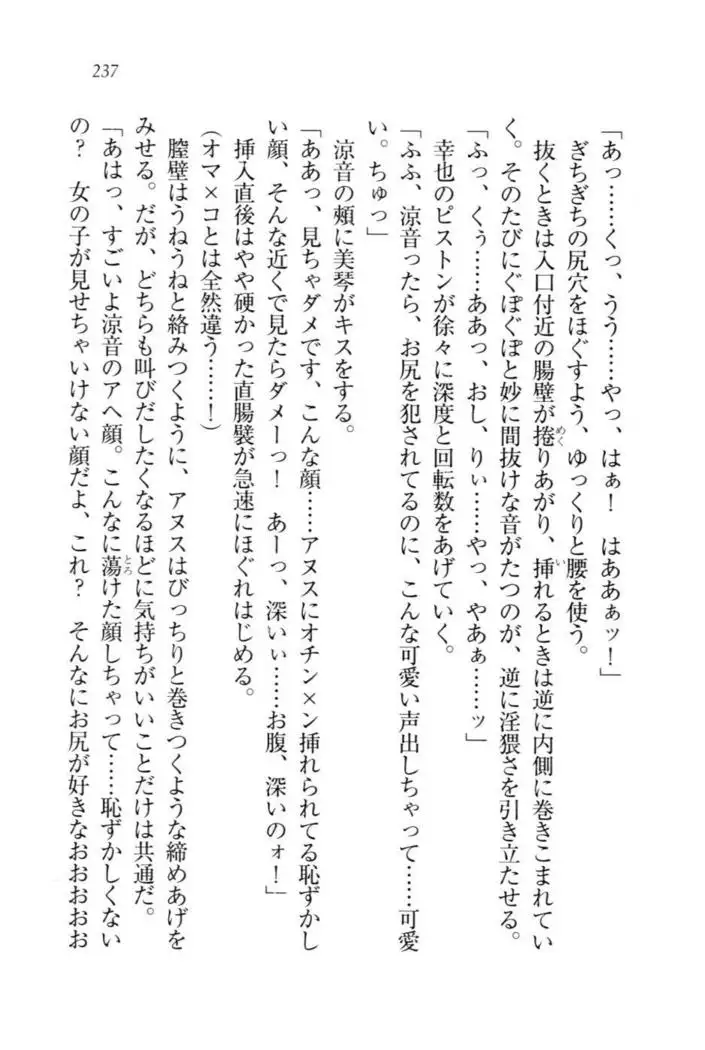 237
「あっ……くっ、うう……やっ、はぁ！　はああぁッ！」
ぎちぎちの尻穴をほぐすよう、ゆっくりと腰を使う。
抜くときは入口付近の腸壁が捲りあがり、挿れるときは逆に内側に巻きこまれてい
く。そのたびにぐぽぐぽと妙に間抜けな音がたつのが、逆に淫猥さを引き立たせる。
「ふっ、くぅ……ああっ、おし、りぃ……やっ、やあぁ……ッ」
幸也のピストンが徐々に深度と回転数をあげていく。
「ふふ、涼音ったら、お尻を犯されてるのに、こんな可愛い声出しちゃって……可愛
い。ちゅっ」
涼音の頰に美琴がキスをする。
「ああっ、見ちゃダメです、こんな顔……アヌスにオチン×ン挿れられてる恥ずかし
い顔、そんな近くで見たらダメーっ！　あーっ、深いぃ……お腹、深いのォ！」
挿入直後はやや硬かった直腸襞が急速にほぐれはじめる。
(オマ×コとは全然違う……！)
膣壁はうねうねと絡みつくように、アヌスはびっちりと巻きつくような締めあげを
みせる。だが、どちらも叫びだしたくなるほどに気持ちがいいことだけは共通だ。
「あはっ、すごいよ涼音のアヘ顔。こんなに蕩けた顔しちゃって……恥ずかしくない
の？　女の子が見せちゃいけない顔だよ、これ？　そんなにお尻が好きなおおおおお